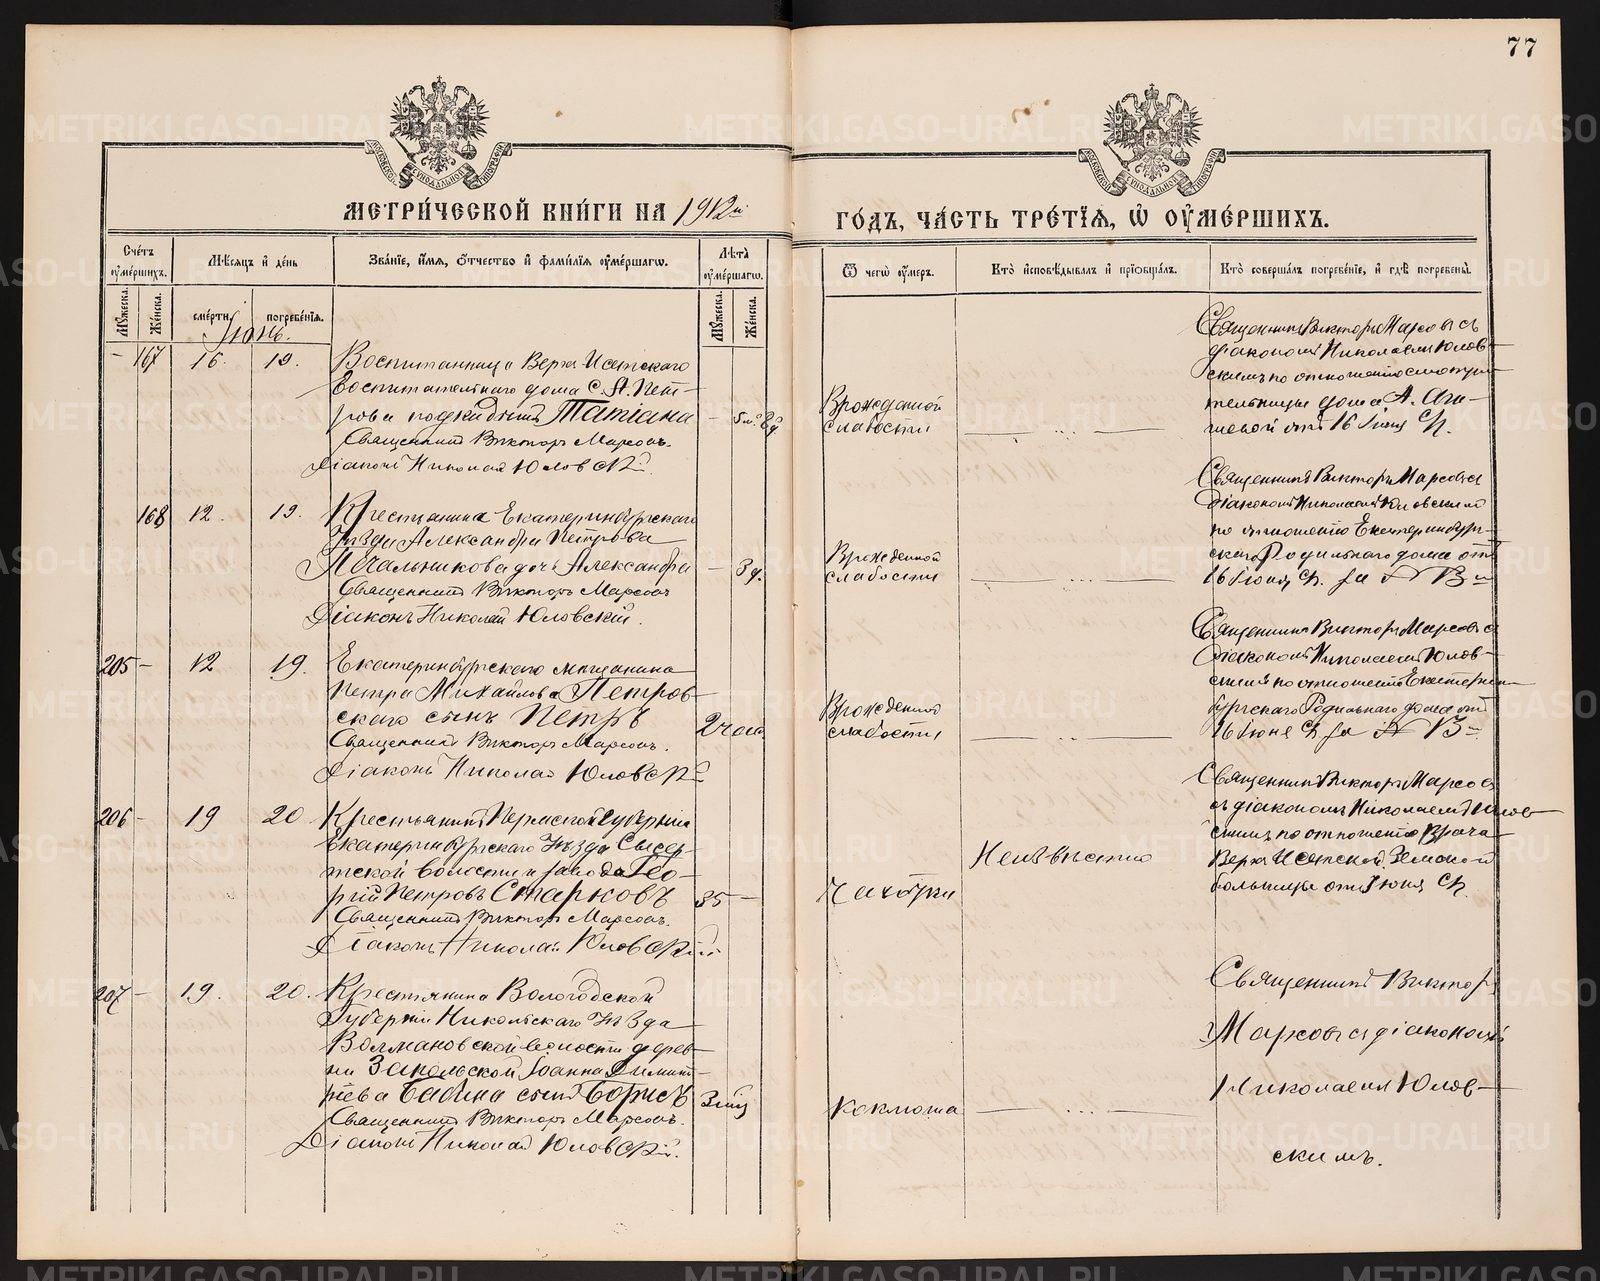 77
МЕТРИ́ЧЕСКОЙ КНИ́ГИ НА 1912й
ГО́ДЪ, ЧА́СТЬ ТРЕ́ТЇѦ, Ѡ҆ ОУ҆МЕ́РШИХЪ.
Сче́тъ оу҆ме́ршихъ.
Мѣ́сяцъ и҆ де́нь
Зва́нїе, и҆́мѧ, ѻ҆́тчество и҆ фамилїѧ оу҆ме́ршагѡ.
Лѣ́та оу҆ме́ршагѡ.
Ѿ чегѡ̀ оу҆́меръ.
Кто̀ и҆сповѣ́дывалъ и҆ прїѡбща́лъ.
Кто̀ соверша́лъ погребе́нїе, и҆ гдѣ̀ погребены̀.
Мꙋ́жеска.
Же́нска.
сме́рти.
погребе́нїѧ.
Мꙋ́жеска.
Же́нска.
Іюнь.
– 167 16. 19. Воспитанница Верхъ Исетскаго
Воспитательнаго дома С. А. Пет-
рова подкидышъ Татіана
Священникъ Викторъ Марсовъ.
Діаконъ Николай Юловскій.
Врожденной
слабости
Священникъ Викторъ Марсовъ съ
діакономъ Николаемъ Юлов-
скимъ по отношенію смотри-
тельницы дома А.
отъ 16 Іюня
168 12. 19. Крестьянина Екатеринбургскаго
Уѣзда Александра Петрова
Печальникова дочь Александра
Священникъ Викторъ Марсовъ
Діаконъ Николай Юловскій.
– 3 д.
Врожденной
слабости
Священникъ Викторъ Марсовъ съ
діакономъ Николаемъ Юловскимъ
по отношенію Екатеринбург-
скаго Родильнаго дома отъ
16 Іюня
205 – 12 19. Екатеринбургскаго мѣщанина
Петра Михайлова Петров-
скаго сынъ Петръ
Священникъ Викторъ Марсовъ.
Діаконъ Николай Юловскій
2 час.
Врожденной
слабости
Священникъ Викторъ Марсовъ съ
діакономъ Николаемъ Юлов-
скимъ по отношенію Екатерин-
бургскаго Родильнаго дома отъ
16 Іюня
206 – 19 20 Крестьянинъ Пермской Губерніи
Екатеринбургскаго Уѣзда Сысер-
тской волости и завода Гео-
ргій Петровъ Старковъ
Священникъ Викторъ Марсовъ.
Діаконъ Николай Юловскій
35 –
Чахотки
Неизвѣстно
Священникъ Викторъ Марсовъ
съ діакономъ Николаемъ Юлов-
скимъ по отношенію Врача
Верхъ Исетской Земской
больницы отъ Іюня
207 – 19. 20. Крестьянина Вологодской
Губерніи Никольскаго Уѣзда
Волмановской волости дерев-
ни Запольской Іоанна Димит-
ріева Бабина сынъ Борисъ
Священникъ Викторъ Марсовъ.
Діаконъ Николай Юловскій.
Коклюша
Священникъ Викторъ
Марсовъ съ діакономъ
Николаемъ Юлов-
скимъ.
METRIKI.GASO-URAL.RU